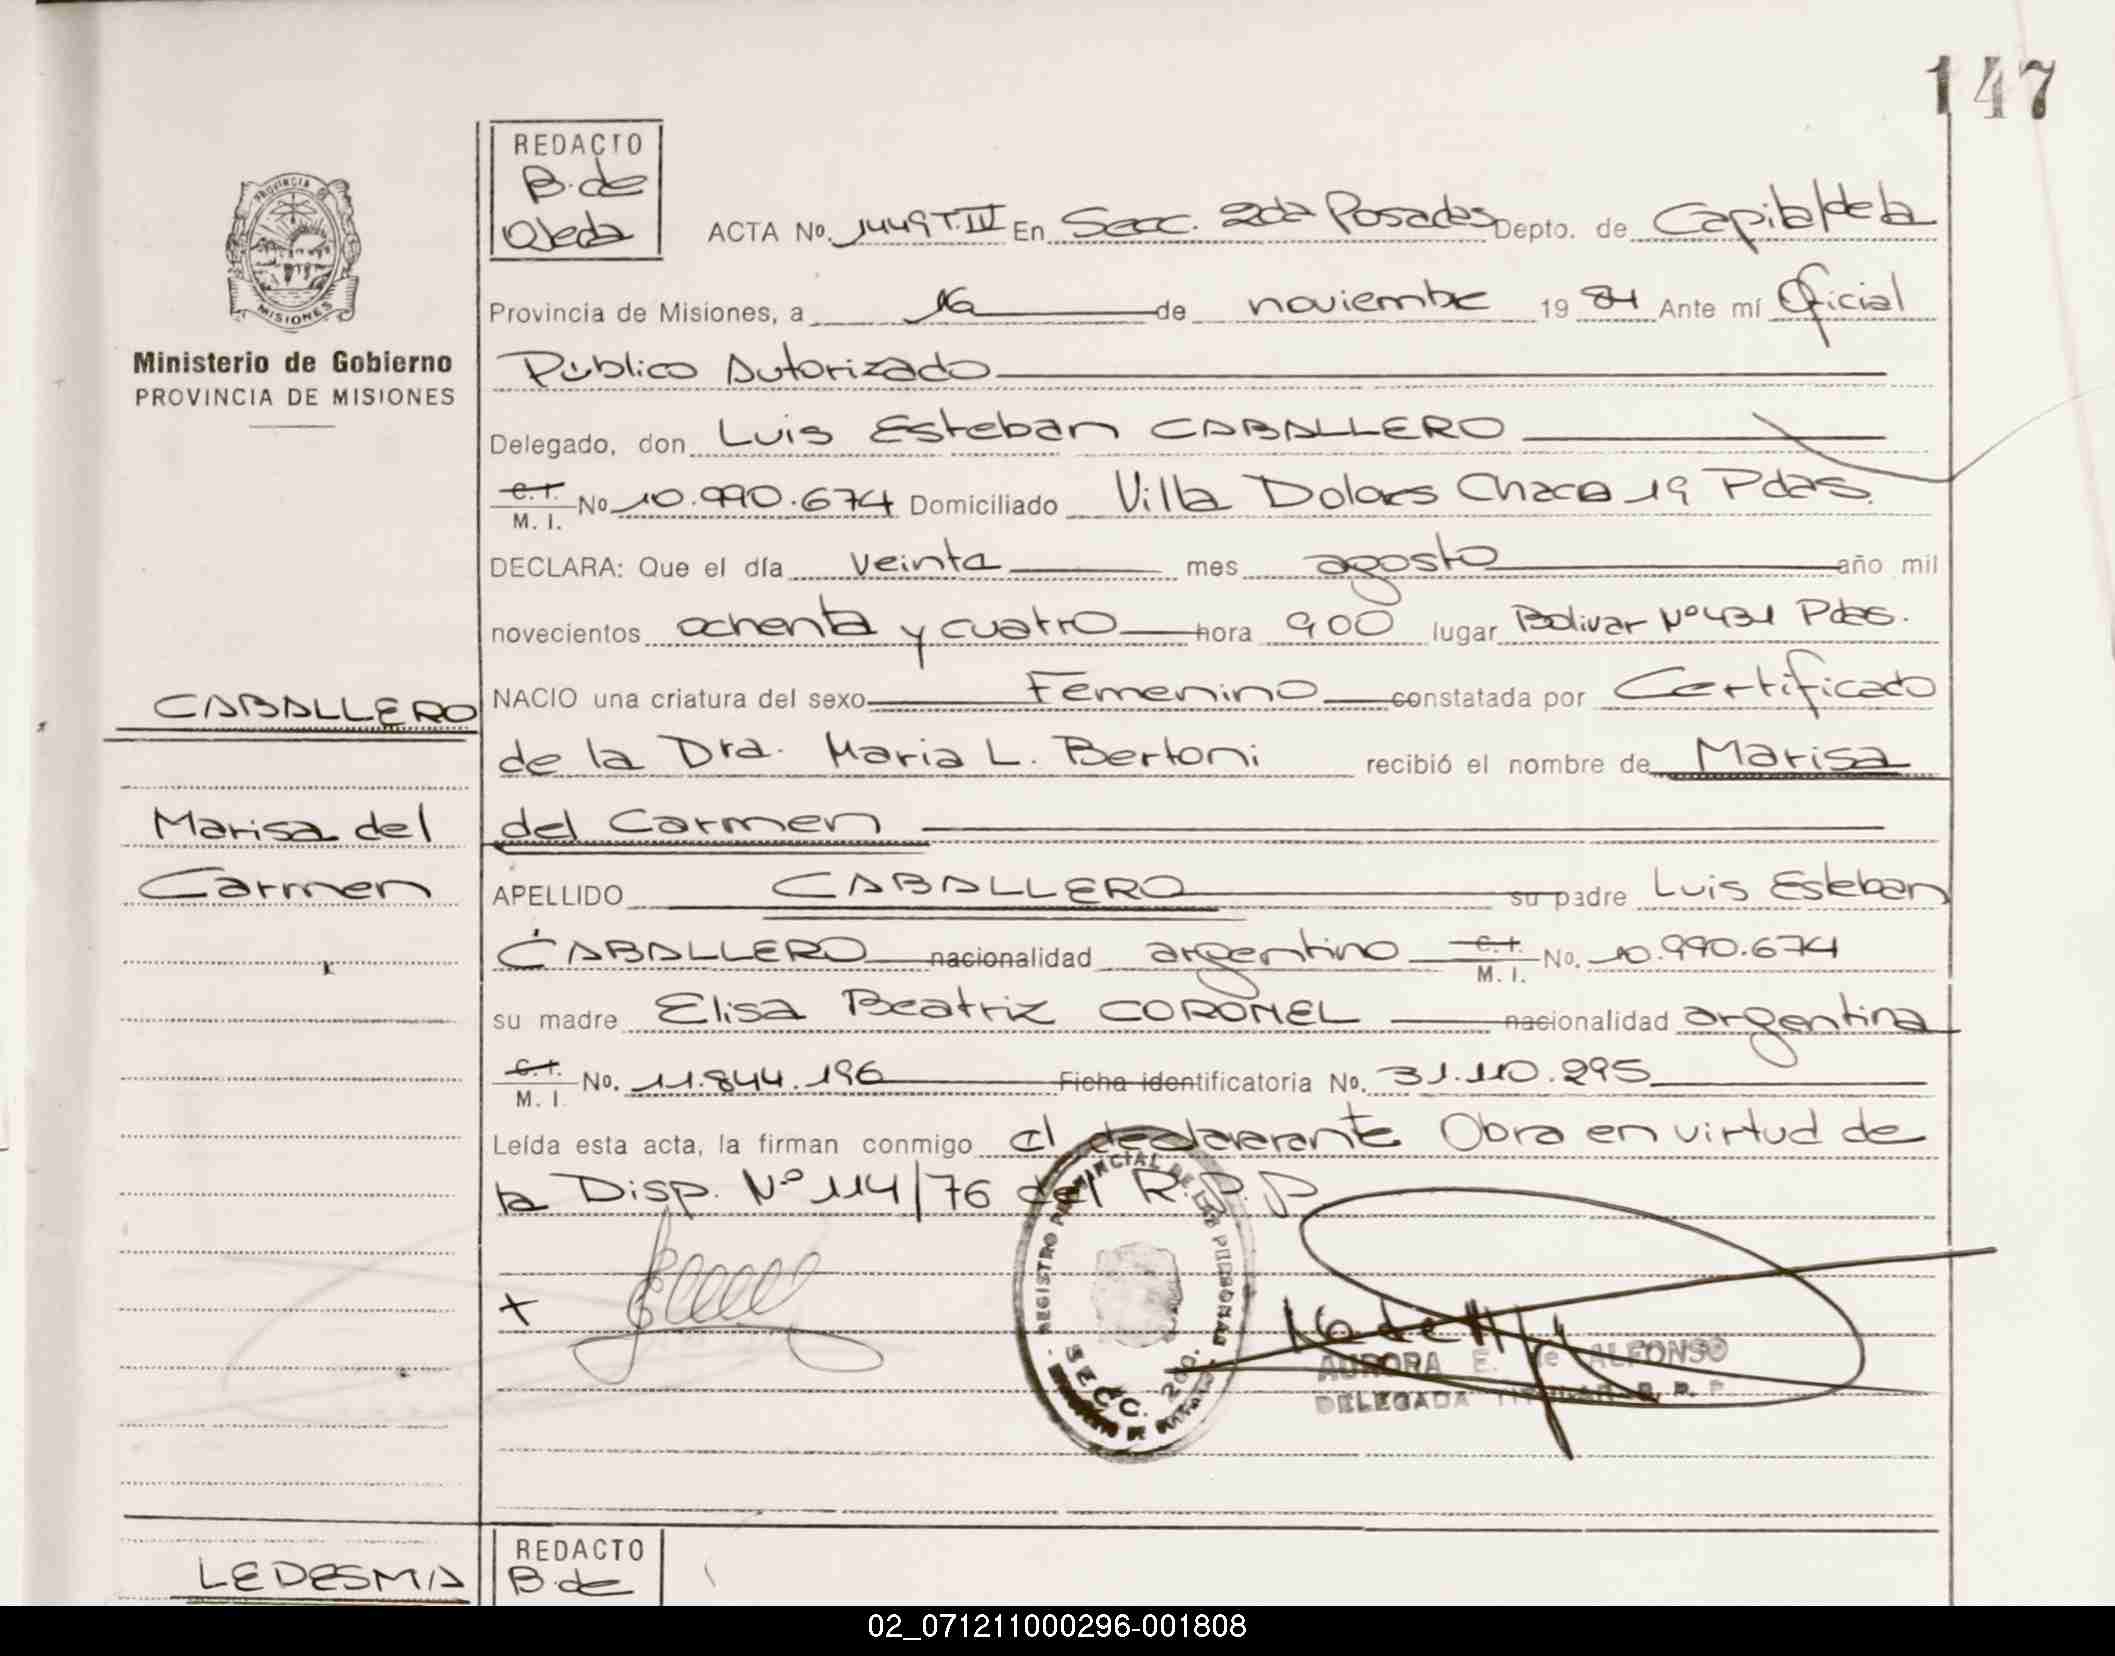 147
REDACTO
B. de
Ojeda
PROVINCIA DE
MISIONES
Ministerio de Gobierno
PROVINCIA DE MISIONES
ACTA No. 1449 T.IV En Secc. 2da Posadas Depto. de Capital de la
Provincia de Misiones, a 16 de noviembre 1984 Ante mí Oficial
Público Autorizado
Delegado, don Luis Esteban CABALLERO
C.I. M. I. No 10.990.674 Domiciliado Villa Dolores Chaca 19 Pdas.
DECLARA: Que el día veinte mes agosto año mil
novecientos ochenta y cuatro hora 900 lugar Bolivar Nº 431 Pdas.
CABALLERO
NACIO una criatura del sexo Femenino constatada por Certificado
de la Dra. Maria L. Bertoni recibió el nombre de Marisa
Marisa del
Carmen
del Carmen
APELLIDO CABALLERO su padre Luis Esteban
CABALLERO nacionalidad argentino C.I. M. I. No. 10.990.674
su madre Elisa Beatriz CORONEL nacionalidad argentina
C.I. M. I. No. 11.844.196 Ficha identificatoria No. 31.110.295
Leída esta acta, la firman conmigo el declararante Obra en virtud de
la Disp. Nº 114/76 del R.P.P
x
REGISTRO PROVINCIAL DE LAS PERSONAS
SECC. 2da.
AURORA E. de ALFONSO
DELEGADA TITULAR R. P. P.
LEDESMA
REDACTO
B. de
02_071211000296-001808